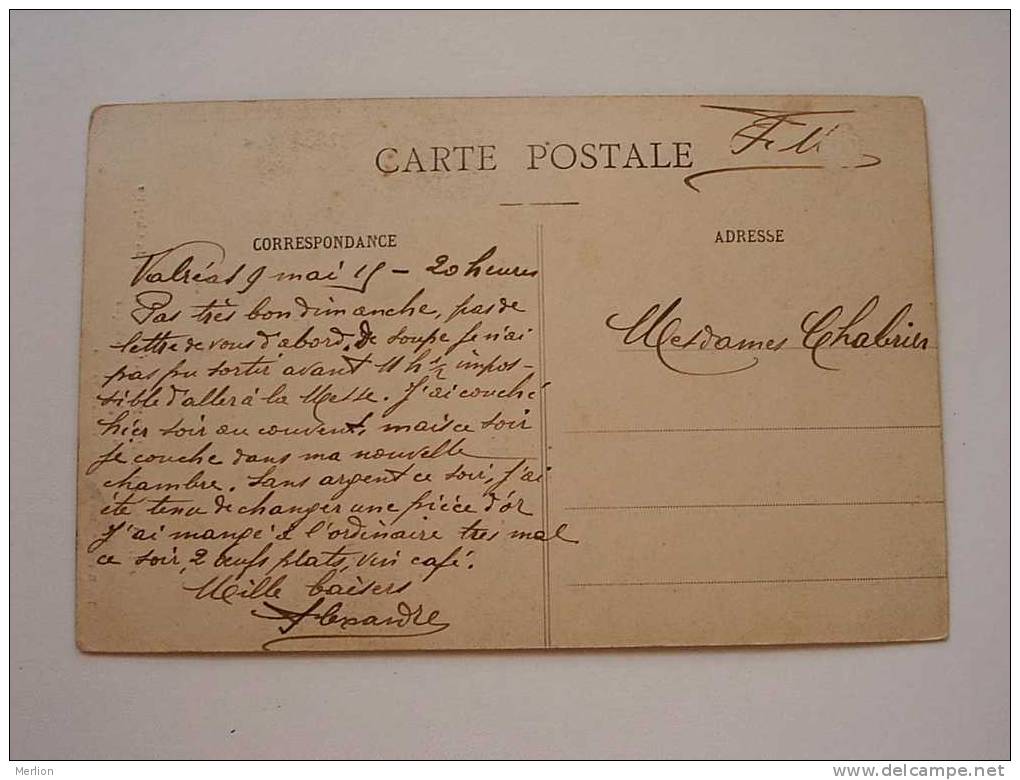 CARTE POSTALE
CORRESPONDANCE
ADRESSE
Valréas 9 mai 15 - 20 heures
Pas très bon dimanche, pas de
lettre de vous d'abord. De soupe je n'ai
pas pu sortir avant 11 h 1/2 impos-
sible d'aller à la Messe. J'ai couché
hier soir au couvent, mais ce soir
je couche dans ma nouvelle
chambre. Sans argent ce soir, j'ai
été tenu de changer une pièce d'or
J'ai mangé à l'ordinaire très mal
ce soir, 2 œufs plats, vin café.
Mille baisers
Alexandre
Mesdames Chabrier
Merlion
www.delcampe.net